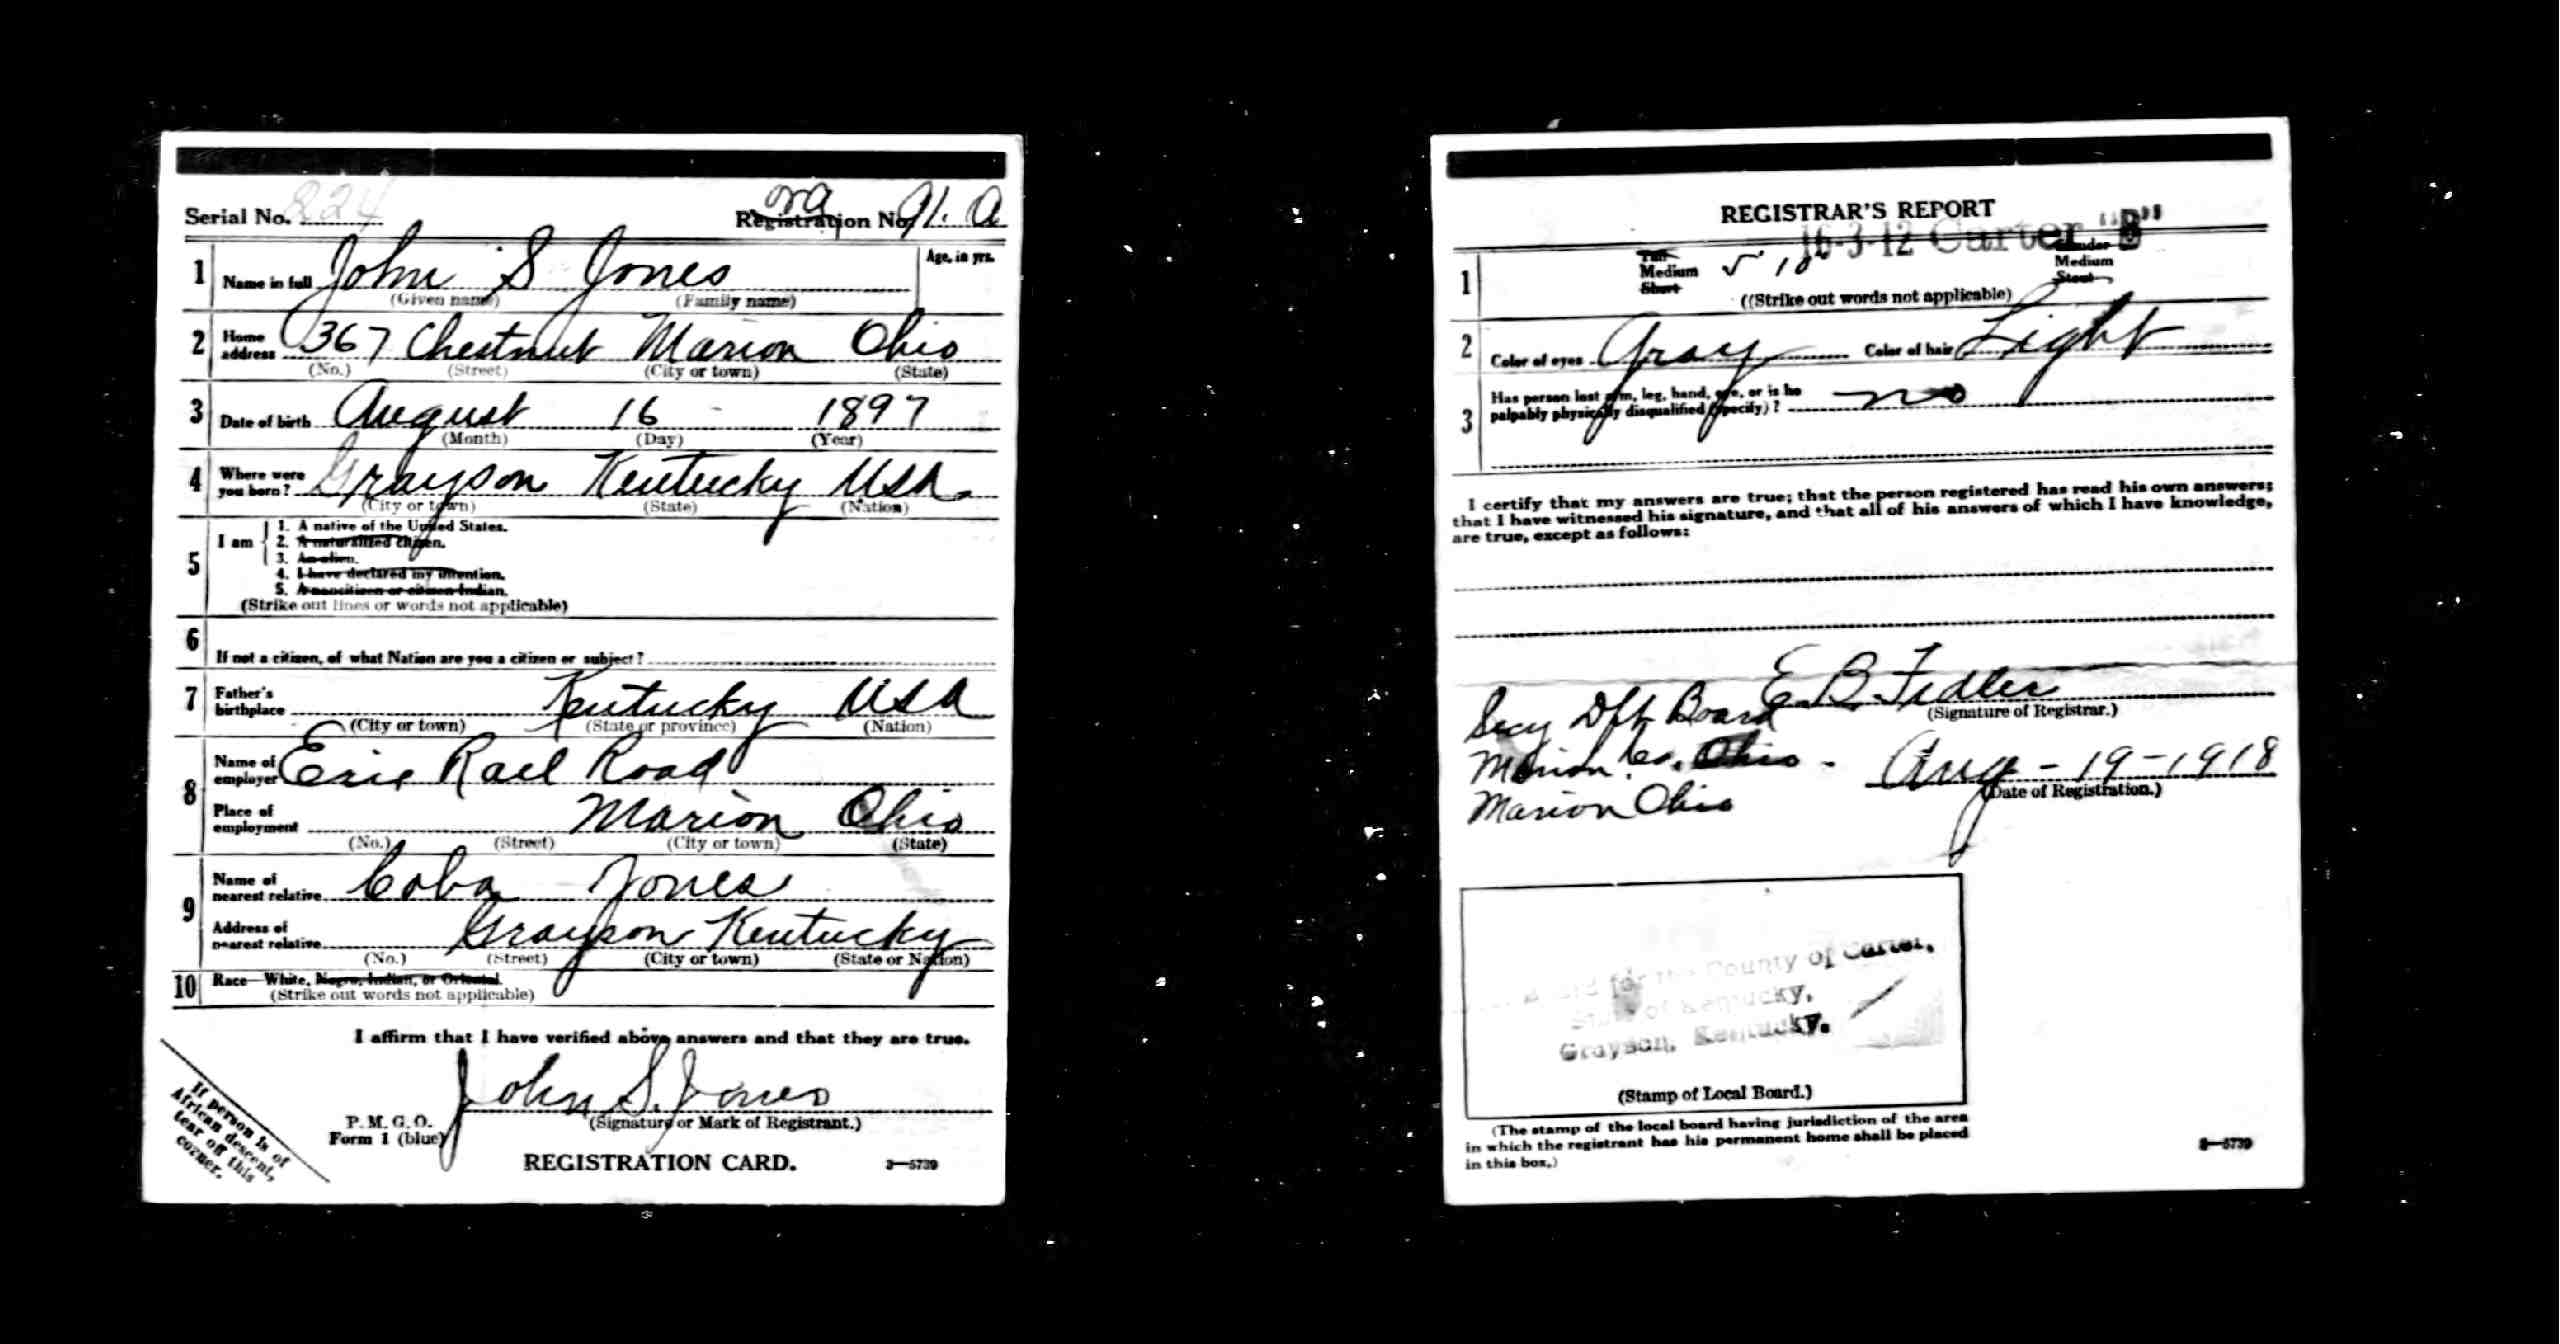 Serial No. 224 Registration No.
1 Name in full John S Jones Age, in yrs.
(Given name) (Family name)
2 Home address 367 Chestnut Marion Ohio
(No.) (Street) (City or town) (State)
3 Date of birth August 16 - 1897
(Month) (Day) (Year)
4 Where were you born? Grayson Kentucky USA.
(City or town) (State) (Nation)
5 I am
1. A native of the United States.
2. A naturalized citizen.
3. An alien.
4. I have declared my intention.
5. A noncitizen or citizen Indian.
(Strike out lines or words not applicable)
6 If not a citizen, of what Nation are you a citizen or subject?
7 Father's birthplace Kentucky USA
(City or town) (State or province) (Nation)
8 Name of employer Erie Rail Road
Place of employment Marion Ohio
(No.) (Street) (City or town) (State)
9 Name of nearest relative Jones
Address of nearest relative Grayson Kentucky
(No.) (Street) (City or town) (State or Nation)
10 Race—White, Negro, Indian, or Oriental.
(Strike out words not applicable)
I affirm that I have verified above answers and that they are true.
John S. Jones
P. M. G. O. (Signature or Mark of Registrant.)
Form 1 (blue)
REGISTRATION CARD. 3—5739
If person is of
African descent,
tear off this
corner.
REGISTRAR'S REPORT
16-3-12 Carter "B"
1 Tall Slender
Medium 5' 10" Medium
Short Stout
((Strike out words not applicable)
2 Color of eyes Gray Color of hair Light
3 Has person lost arm, leg, hand, eye, or is he
palpably physically disqualified (specify)? no
I certify that my answers are true; that the person registered has read his own answers;
that I have witnessed his signature, and that all of his answers of which I have knowledge,
are true, except as follows:
E. B. Fidler
(Signature of Registrar.)
Secy Dft Board
Marion Co. Ohio - Aug - 19 - 1918
Marion Ohio (Date of Registration.)
for the County of Carter,
State of Kentucky,
Grayson, Kentucky.
(Stamp of Local Board.)
(The stamp of the local board having jurisdiction of the area
in which the registrant has his permanent home shall be placed
in this box.)
3—5739